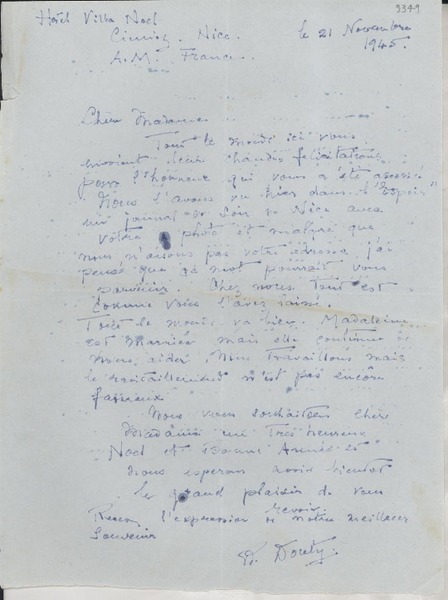 9349
Hôtel Villa Noel
Cimiez, Nice.
A.M. France.
le 21 Novembre
1945.
Chère Madame
Tout le monde ici vous
envoient leur chaudes felicitations
pour l'honneur qui vous a été
Nous l'avons vu hier dans "l'Espoir"
un journal de Soir de Nice avec
votre photo et malgré que
nous n'avons pas votre adresse j'ai
pensé que ce mot pourrait vous
parvenir. Chez nous tout est
comme vous l'avez laissé.
Tout le monde va bien. Madeleine
est marriée mais elle continue de
nous aider. Nous travaillons mais
le ravitaillement n'est pas encore
fameux.
Nous vous souhaitons chère
Madame un très heureux
Noel et Bonne Année et
nous esperons avoir bientot
le grand plaisir de vous
revoir.
Recevez l'expression de notre meilleur
souvenir
Douty.